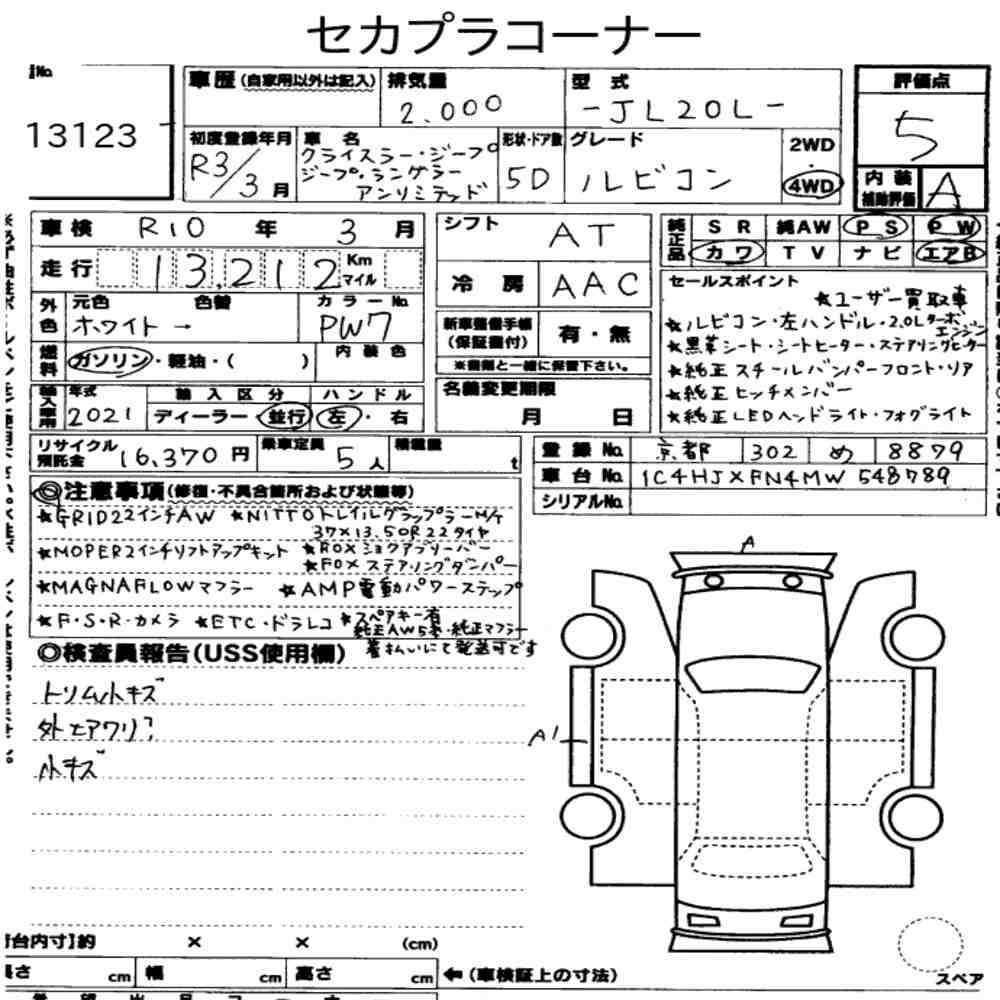 セカプラコーナー
No.
13123
車歴 (自家用以外は記入)
排気量
2.000
型式
-JL20L-
評価点
5
初度登録年月
R3/3月
車名
クライスラー・ジープ
ジープ・ラングラー
アンリミテッド
形状・ドア数
5D
グレード
ルビコン
2WD
・
4WD
内装
補助評価
A
車検 R10 年 3 月
走行 13,212 Km マイル
外色
元色 色替
ホワイト →
カラーNo.
PW7
燃料
ガソリン・軽油・( )
内装色
輸入車用
年式
2021
輸入区分
ディーラー・並行
ハンドル
左・右
シフト
AT
冷房
AAC
新車整備手帳
(保証書付)
有・無
※書類と一緒に保管下さい。
名義変更期限
月 日
純正品
SR 純AW PS PW
カワ TV ナビ エアB
セールスポイント
★ユーザー買取車
★ルビコン・左ハンドル・2.0Lターボ
エンジン
★黒革シート・シートヒーター・ステアリングヒーター
★純正スチールバンパーフロント・リア
★純正ヒッチメンバー
★純正LEDヘッドライト・フォグライト
リサイクル
預託金
16,370円
乗車定員
5人
積載量
t
登録No. 京都 302 め 8879
車台No. 1C4HJXFN4MW548789
シリアルNo.
◎注意事項(修復・不具合箇所および状態等)
★GRID22インチAW ★NITTOトレイルグラップラーM/T
37×13.50R22タイヤ
★MOPER2インチリフトアップキット ★FOXショックアブソーバー
★FOXステアリングダンパー
★MAGNAFLOWマフラー ★AMP電動パワーステップ
★F・S・R・カメラ ★ETC・ドラレコ ★スペアキー有
純正AW5本・純正マフラー
着払いにて発送可です
◎検査員報告(USS使用欄)
トリム小キズ
外エアワリ?
小キズ
A
A1
台内寸]約 × × (cm)
長さ cm 幅 cm 高さ cm ←(車検証上の寸法)
スペア